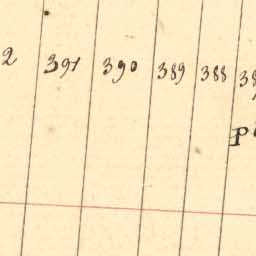 2 391 390 389 388 38
P